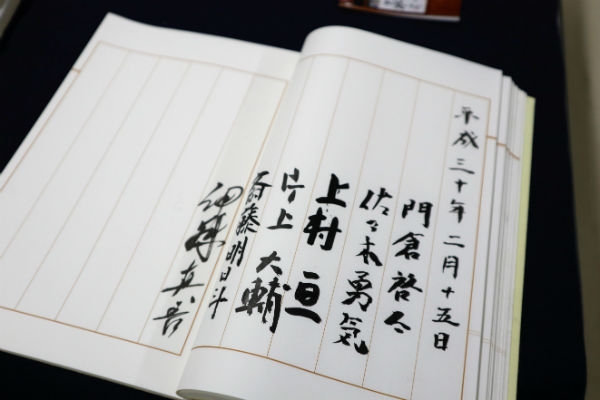 平成三十年二月十五日
門倉啓太
佐々木勇気
上村亘
片上大輔
斎藤明日斗
真吾